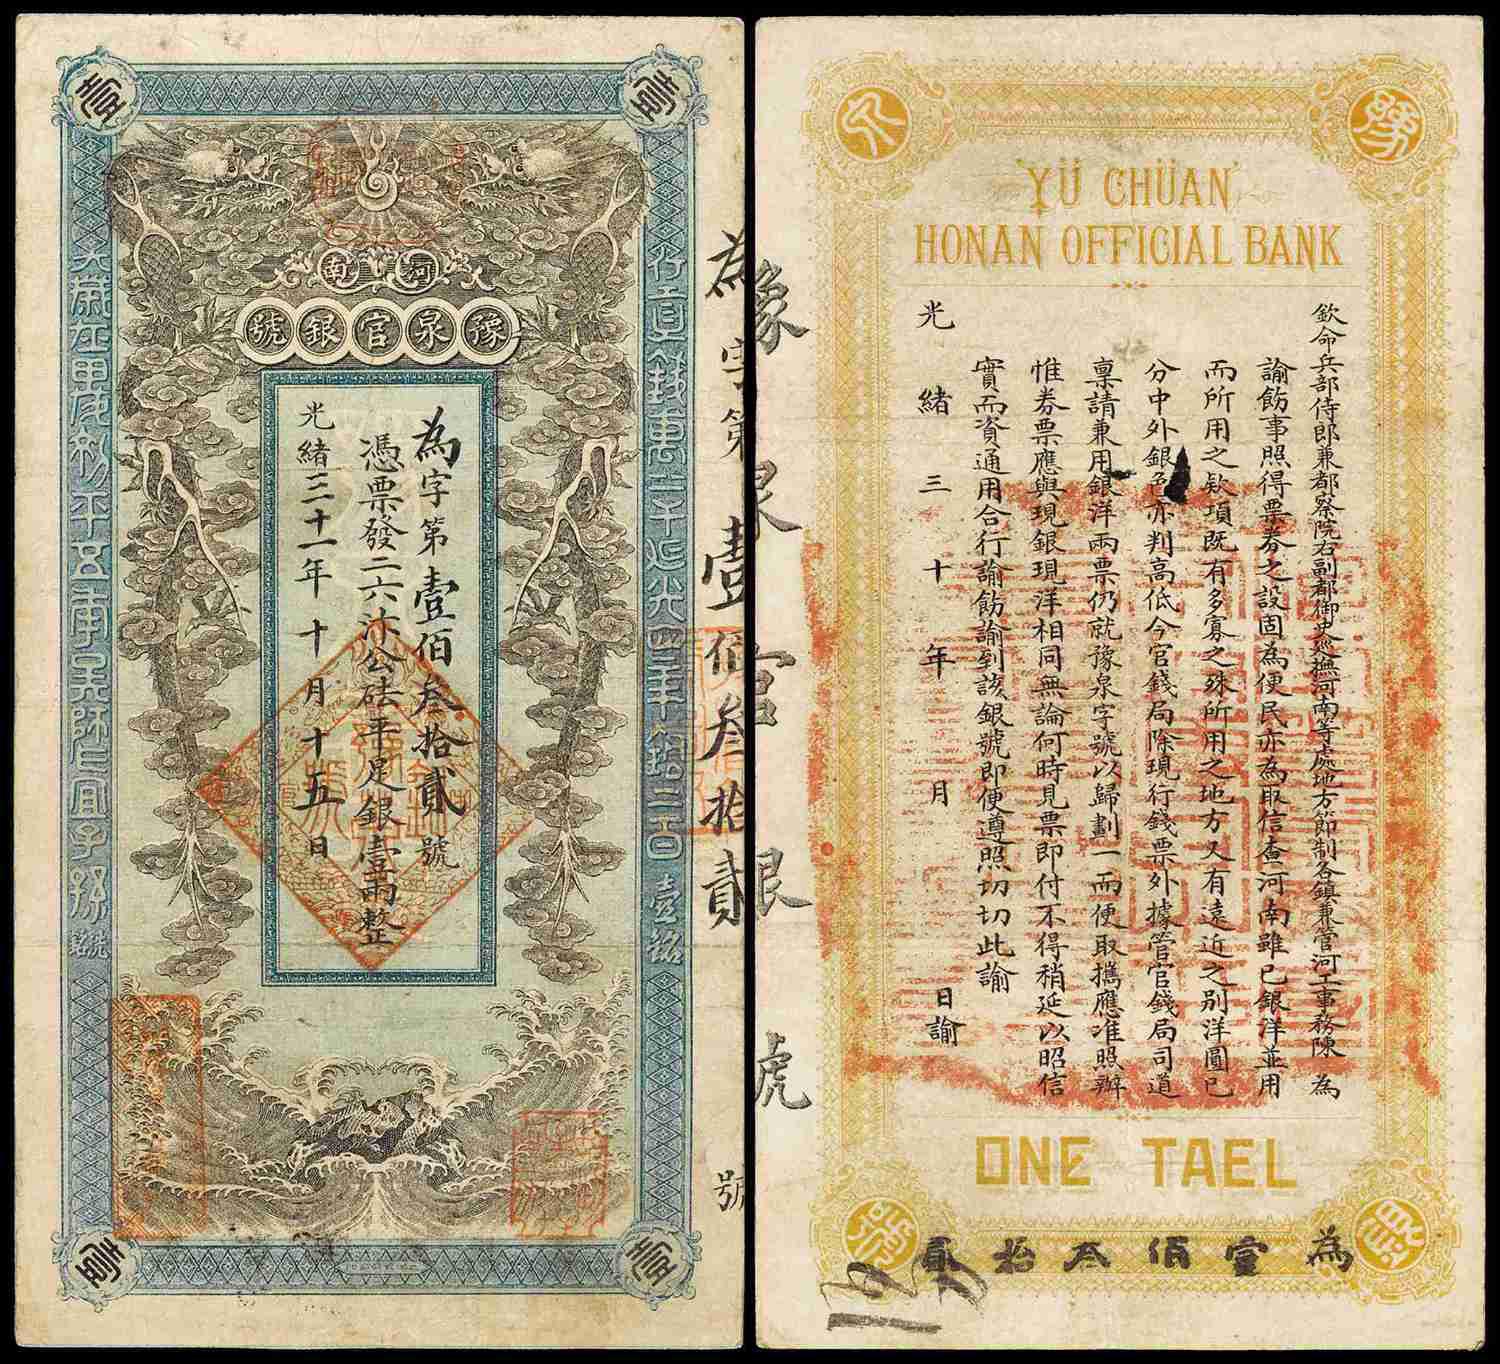 壹
壹
河南
豫泉官銀號
為字第壹佰叁拾貳號
憑票發二六汴公砝平足銀壹兩整
光緒三十一年十月十五日
為字第壹佰叁拾貳號
壹
壹
泉
豫
YÜ CHÜAN
HONAN OFFICIAL BANK
欽命兵部侍郎兼都察院右副都御史巡撫河南等處地方節制各鎮兼管河工事務陳 為
諭飭事照得票券之設固為便民亦為取信查河南雖已銀洋並用
而所用之欵項既有多寡之殊所用之地方又有遠近之別洋圓已
分中外銀色亦判高低今官錢局除現行錢票外據管官錢局司道
稟請兼用銀洋兩票仍就豫泉字號以歸劃一而便取攜應准照辦
惟券票應與現銀現洋相同無論何時見票即付不得稍延以昭信
實而資通用合行諭飭諭到該銀號即便遵照切切此諭
光緒三十年十月 日諭
ONE TAEL
為壹佰叁拾貳